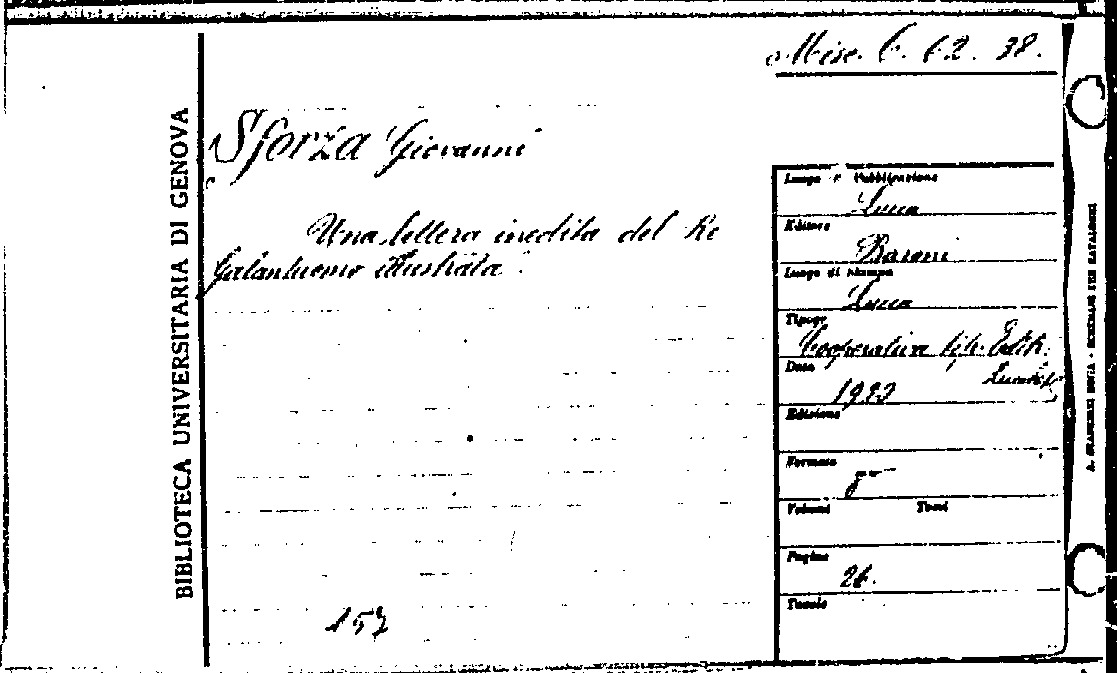 Misc. C. 62. 38.
BIBLIOTECA UNIVERSITARIA DI GENOVA
Sforza Giovanni
Una lettera inedita del Re
Galantuomo illustrata.
157
Luogo di Pubblicazione
Lucca
Editore
Baroni
Luogo di Stampa
Lucca
Tipogr.
Cooperativa tip. Edit.
Data
Edizione
Formato
8°
Volumi Tomi
Pagine
26.
Tavole